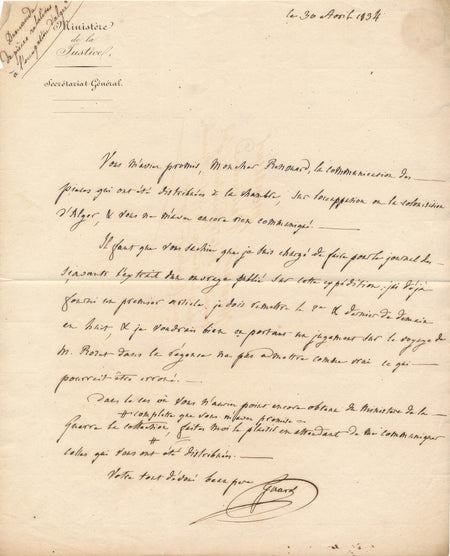 Demande
de pièces relatives
à l'occupation d'Alger
Ministère
de la
Justice.
Secrétariat Général.
le 30 Avril 1834
Vous m'aviez promis, mon cher Renouard, la communication des
pièces qui ont été distribuées à la chambre, sur l'occupation ou la colonisation
d'Alger, & vous ne m'avez encore rien communiqué.
Il faut que vous sachiez que je suis chargé de faire pour le journal des
sçavants l'extrait d'un ouvrage publié sur cette expédition; j'ai déjà
fourni un premier article, je dois remettre le 2e & dernier de demain
en huit, & je voudrais bien en portant un jugement sur le voyage de
M. Rozet dans la régence ne pas admettre comme vrai ce qui
pourrait être erroné.
Dans le cas où vous n'auriez point encore obtenu du Ministère de la
# complette que vous m'aviez promise
Guerre la collection, faites moi le plaisir en attendant de me communiquer
#
celles qui vous ont été distribuées.
Votre tout dévoué beau père